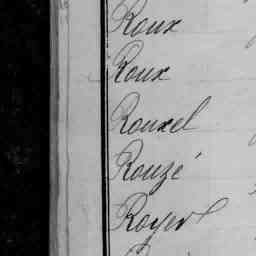 Roux
Roux
Rouxel
Rouzé
Royer